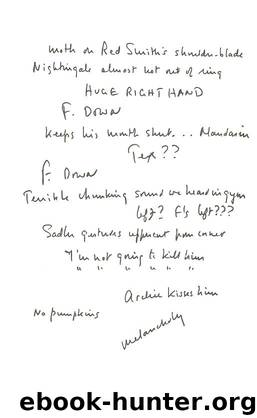 moth on Red Smith's shoulder-blade
Nightingale almost not out of ring
HUGE RIGHT HAND
F. DOWN
Keeps his mouth shut... Mandarin
Tex??
F. DOWN
Terrible chunking sound we heard in gym
left? F's left???
Sadler gestures opponent from corner
"I'm not going to kill him
" " " " " "
Archie kisses him
No pumpkins
melancholy
ebook-hunter.org